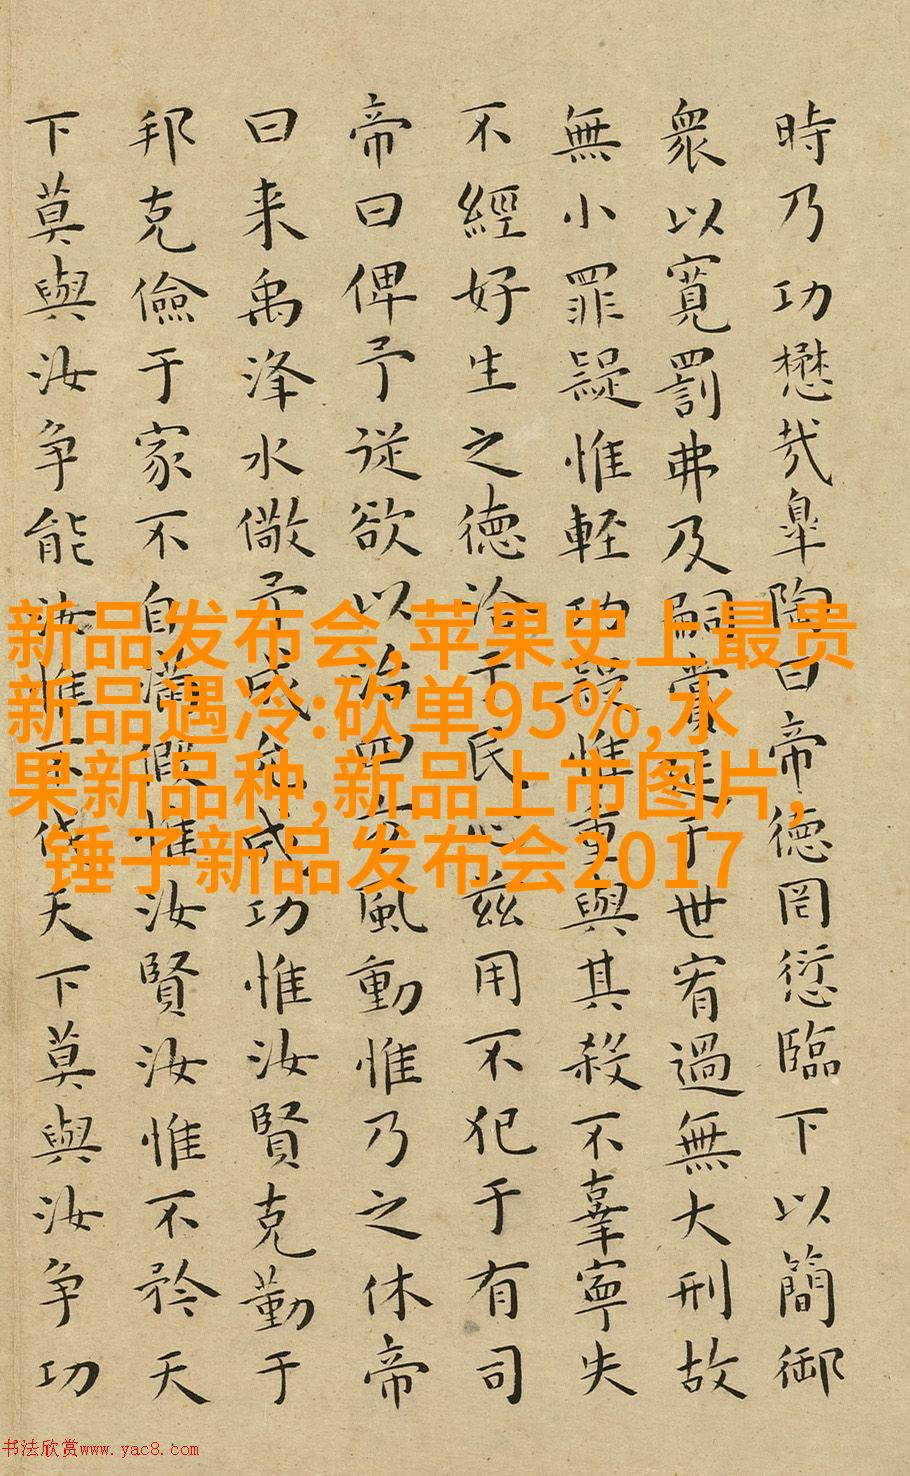 時乃功懋哉皐陶曰帝德罔愆臨下以簡御
衆以寬罰弗及嗣賞延于世宥過無大刑故
無小罪疑惟輕功疑惟重與其殺不辜寧失
不經好生之德洽于民心兹用不犯于有司
帝曰俾予從欲以治四方風動惟乃之休帝
曰来禹洚水儆予成允成功惟汝賢克勤于
邦克儉于家不自滿假惟汝賢汝惟不矜天
下莫與汝争能汝惟不伐天下莫與汝争功
新品发布会,苹果史上最贵
新品遇冷:砍单95%,水
果新品种,新品上市图片,
锤子新品发布会2017
书法欣赏www.yac8.com